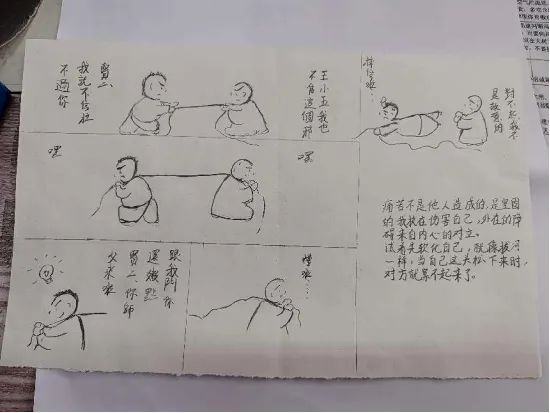 王小五我也
不信這個邪
賢二、
我就不信拉
不過你
對不起,我不
是故意的
嘿
嘿
跟我鬥你
還嫩點
賢二、你師
父來啦
痛苦不是他人造成的,是里面
的我执在伤害自己,外在的障
碍来自内心的对立。
是软化自己,就像拔河
一样,当自己这头松下来时,
对方就不起来了。